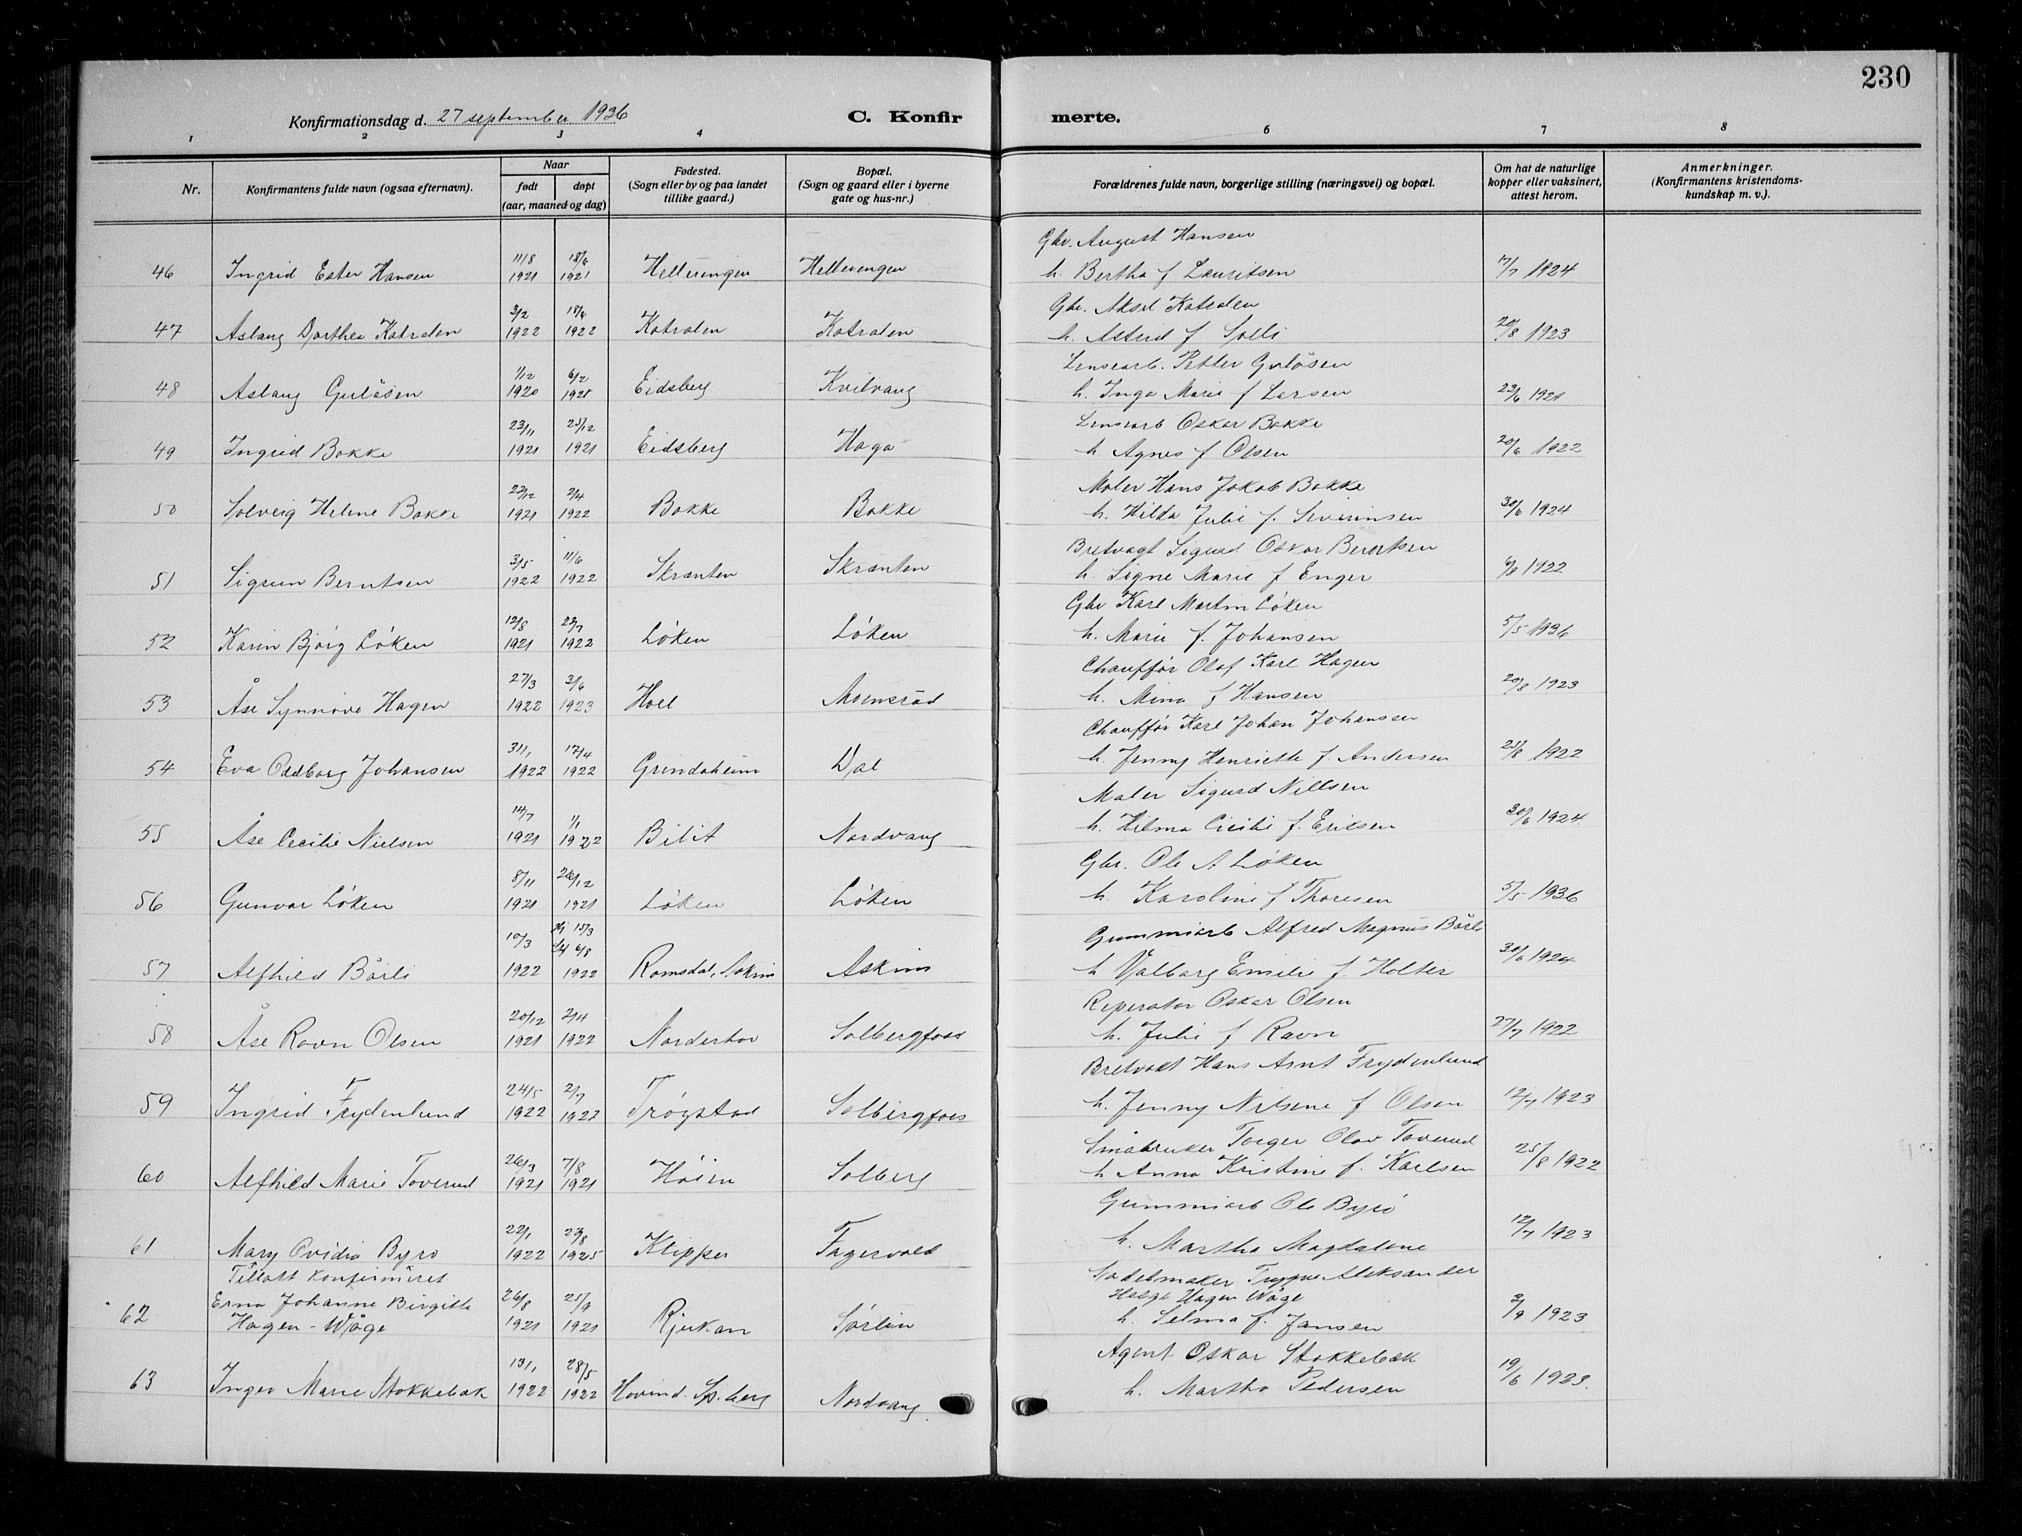 230
Konfirmationsdag d. 27 september 1936
C. Konfirmerte.
1 2 3 4 6 7 8
Nr.
Konfirmantens fulde navn (ogsaa efternavn).
Naar
født døpt
(aar, maaned og dag)
Fødested.
(Sogn eller by og paa landet
tillike gaard.)
Bopæl.
(Sogn og gaard eller i byerne
gate og hus-nr.)
Forældrenes fulde navn, borgerlige stilling (næringsvei) og bopæl.
Om hat de naturlige
kopper eller vaksinert,
attest herom.
Anmerkninger.
(Konfirmantens kristendoms-
kundskap m. v.).
11/8 18/6 Gbr. August Hansen
46 Ingrid Ester Hansen 1921 1921 Hellerengen Hellerengen h. Bertha f Lauritsen 17/7 1924
3/2 18/6 Gbr. Aksel Katralen
47 Aslaug Dorthea Katralen 1922 1922 Katralen Katralen h. Astrid f Solli 20/8 1923
1/12 6/2 Lensearb. Petter Gulåsen
48 Aslaug Gulåsen 1920 1921 Eidsberg Kvilvang h. Inga Marie f Larsen 23/6 1921
23/11 25/12 Lensearb Oskar Bakke
49 Ingrid Bakke 1921 1921 Eidsberg Haga h Agnes f Olsen 20/6 1922
22/12 2/4 Maler Hans Jakob Bakke
50 Solveig Helene Bakke 1921 1922 Bakke Bakke h. Hilda Julie f. Severinsen 30/6 1924
3/5 11/6 Bretvagt Sigurd Oskar Berntsen
51 Sigrun Berntsen 1922 1922 Skranten Skranten h. Signe Marie f Enger 1922
12/8 23/7 Gbr Karl Martin Løken
52 Karin Bjørg Løken 1921 1922 Løken Løken h. Marie f. Johansen 5/5 1936
27/3 3/6 Chauffør Olaf Karl Hagen
53 Åse Synnøve Hagen 1922 1923 Hoel Monserød h. Mina f Hansen 20/8 1923
31/1 17/4 Chauffør Karl Johan Johansen
54 Eva Oddborg Johansen 1922 1922 Grindaheim Dal h. Jenny Henriette f Andersen 25/8 1922
14/7 1/1 Maler Sigurd Nillsen
55 Åse Cecilie Nielsen 1921 1922 Bilit Nordvang h. Hilma Cicilie f. Eriksen 30/6 1924
8/11 26/12 Gbr. Ole A Løken
56 Gunvor Løken 1921 1921 Løken Løken h. Karoline f Thoresen 5/5 1936
10/3 15/3 6/8 Gummiarb Alfred Magnus Bårli
57 Alfhild Bårli 1922 1922 Romsdal, Askim Askim h Valborg Emilie f. Holter 30/6 1924
20/12 2/4 Reperatør Oskar Olsen
58 Åse Ravn Olsen 1921 1922 Norderhov Solbergfoss h. Julie f Ravn 27/7 1922
24/5 2/7 Bretvakt Hans Arnt Frydenlund
59 Ingrid Frydenlund 1922 1922 Trøgstad Solbergfoss h. Jenny Nilsine f Olsen 12/7 1923
26/3 7/8 Småbruker Torger Olav Toverud
60 Alfhild Marie Toverud 1921 1921 Høien Solberg h Anna Kristine f. Karlsen 25/8 1922
22/1 23/8 Gummiarb Ole Byrø
61 Mary Ovidia Byrø 1922 1925 Klipper Fagervold h. Martha Magdalene 12/7 1923
Tillatt konfirmeret
26/8 25/9 Sadelmaker Trygve Aleksander
62 Erna Johanne Birgitte Helge Hagen Wåge
Hagen-Wåge 1921 1921 Rjukan Sørlin h. Selma f. Jansen 3/9 1923
13/1 28/5 Agent Oskar Stokkebæk
63 Inger Marie Stokkebæk 1922 1922 Hovind. Sp.berg Nordvang. h. Martha Pedersen 19/6 1923.